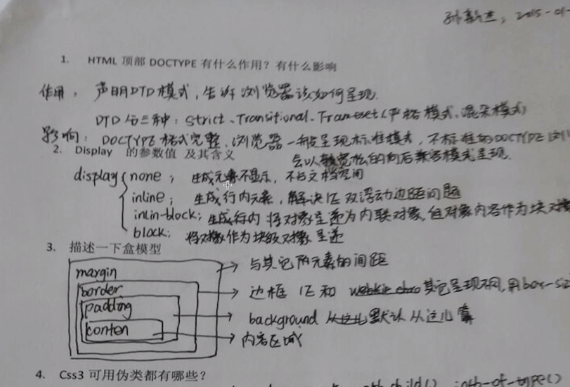 孙新杰, 2015-01
1. HTML 顶部 DOCTYPE 有什么作用？有什么影响
作用： 声明DTD模式，告诉浏览器该如何呈现
DTD 分三种：Strict、Transitional、Frameset（严格模式、混杂模式）
影响：DOCTYPE 格式完整，浏览器一般呈现标准模式，不标准的DOCTYPE
2. Display 的参数值 及其含义
会以 的向后兼容模式呈现.
display none； 生成元素不显示，不占文档空间
inline； 生成行内元素，解决IE双浮动边距问题
inlin-block；生成行内 将对象呈递为内联对象，但对象内容作为块对象
block； 将对象作为块级对象呈递
3. 描述一下盒模型
margin 与其它元素的间距
border 边框 IE和 其它呈现不同，用box-siz
padding background 默认从这儿
conten 内容区域
4. Css3 可用伪类都有哪些？